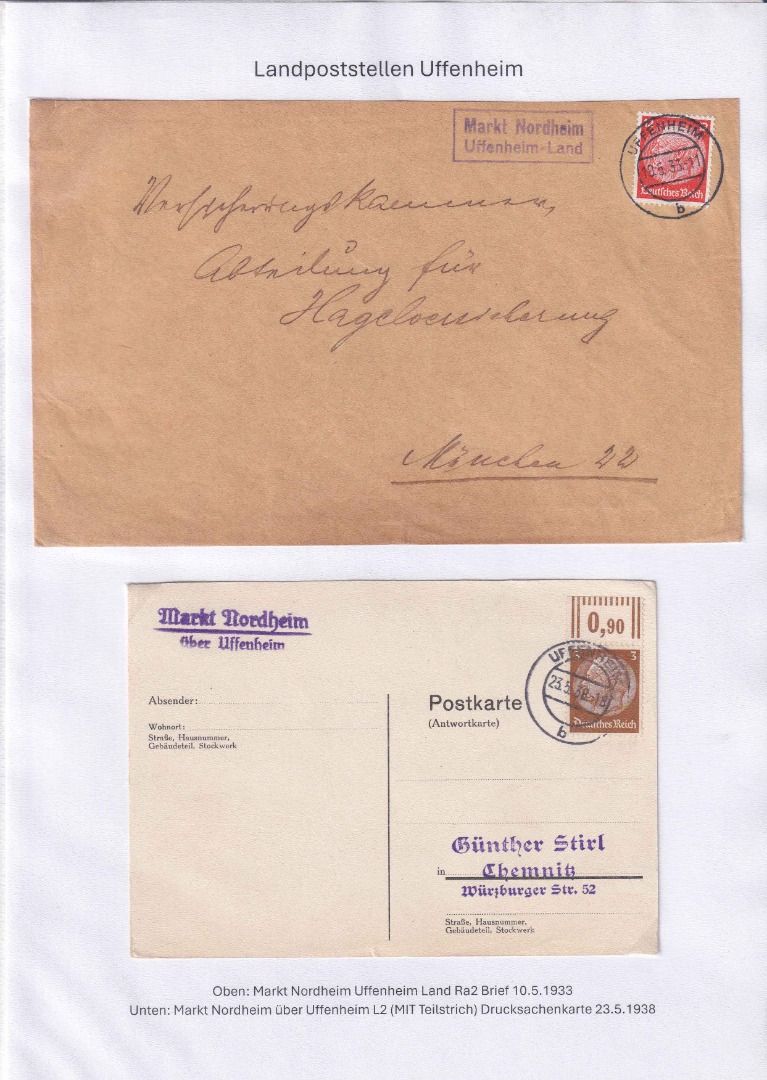 Landpoststellen Uffenheim
Markt Nordheim
Uffenheim-Land
UFFENHEIM
Deutsches Reich
b
Versicherungskammer,
Abteilung für
Hagelversicherung
München 22
Markt Nordheim
über Uffenheim
0,90
UFFENHEIM
3
23.5.38
Deutsches Reich
b
Absender:
Wohnort:
Straße, Hausnummer,
Gebäudeteil, Stockwerk
Postkarte
(Antwortkarte)
Günther Stirl
in Chemnitz
Würzburger Str. 52
Straße, Hausnummer,
Gebäudeteil, Stockwerk
Oben: Markt Nordheim Uffenheim Land Ra2 Brief 10.5.1933
Unten: Markt Nordheim über Uffenheim L2 (MIT Teilstrich) Drucksachenkarte 23.5.1938